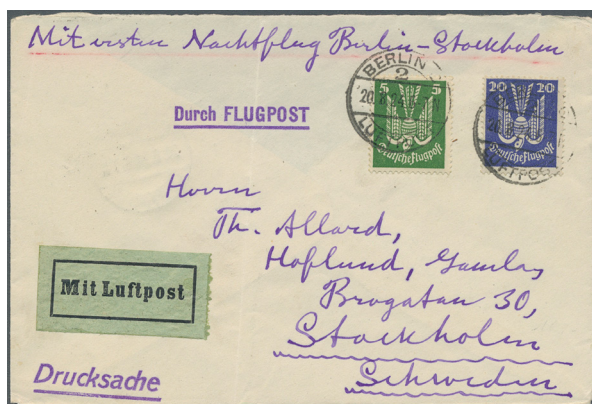 Mit ersten Nachtflug Berlin-Stockholm
BERLIN
2
LUFTPOST
5 5
Deutsche Flugpost
20 20
Deutsche Flugpost
LUFTPOST
Durch FLUGPOST
Herrn
Th. Allard,
Hoflund, Gamla
Brogatan 30,
Stockholm
Schweden
Mit Luftpost
Drucksache